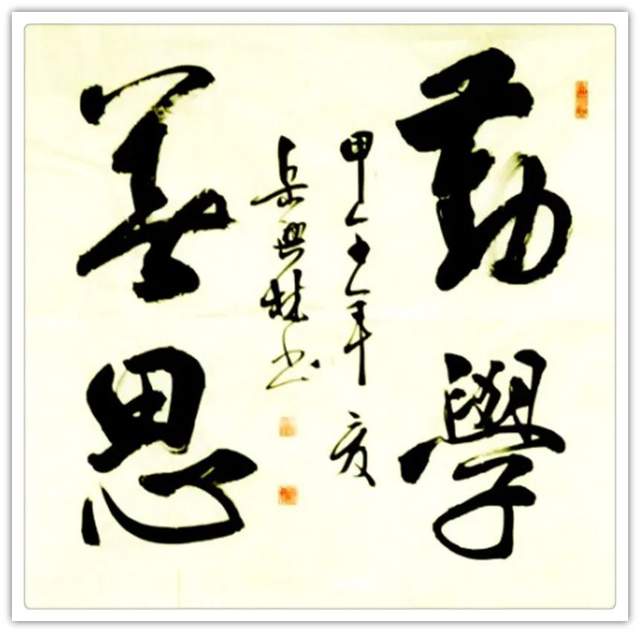 勤學
善思
甲午年夏
岳興林书